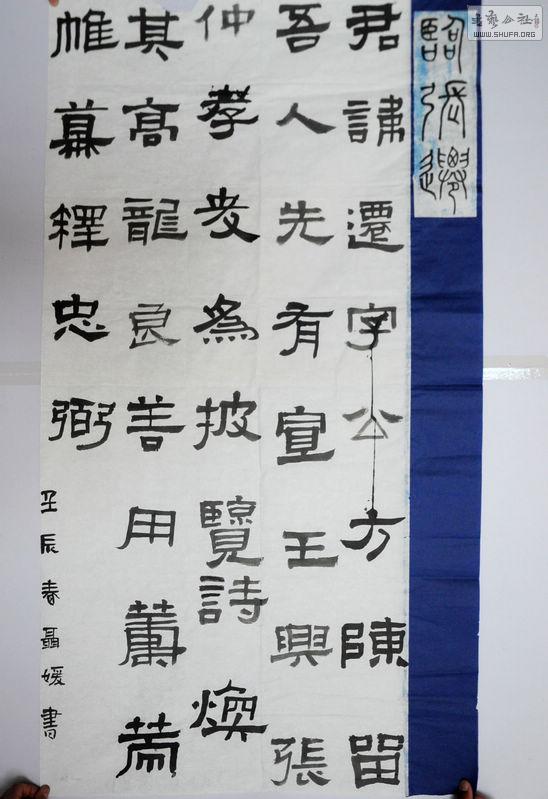 書藝公社
WWW.SHUFA.ORG
臨張遷
君諱遷字公方陳留
吾人先有宣王興張
仲孝友為披覽詩煥
其高龍良善用籌策
帷幕釋忠弼
壬辰春聶媛書